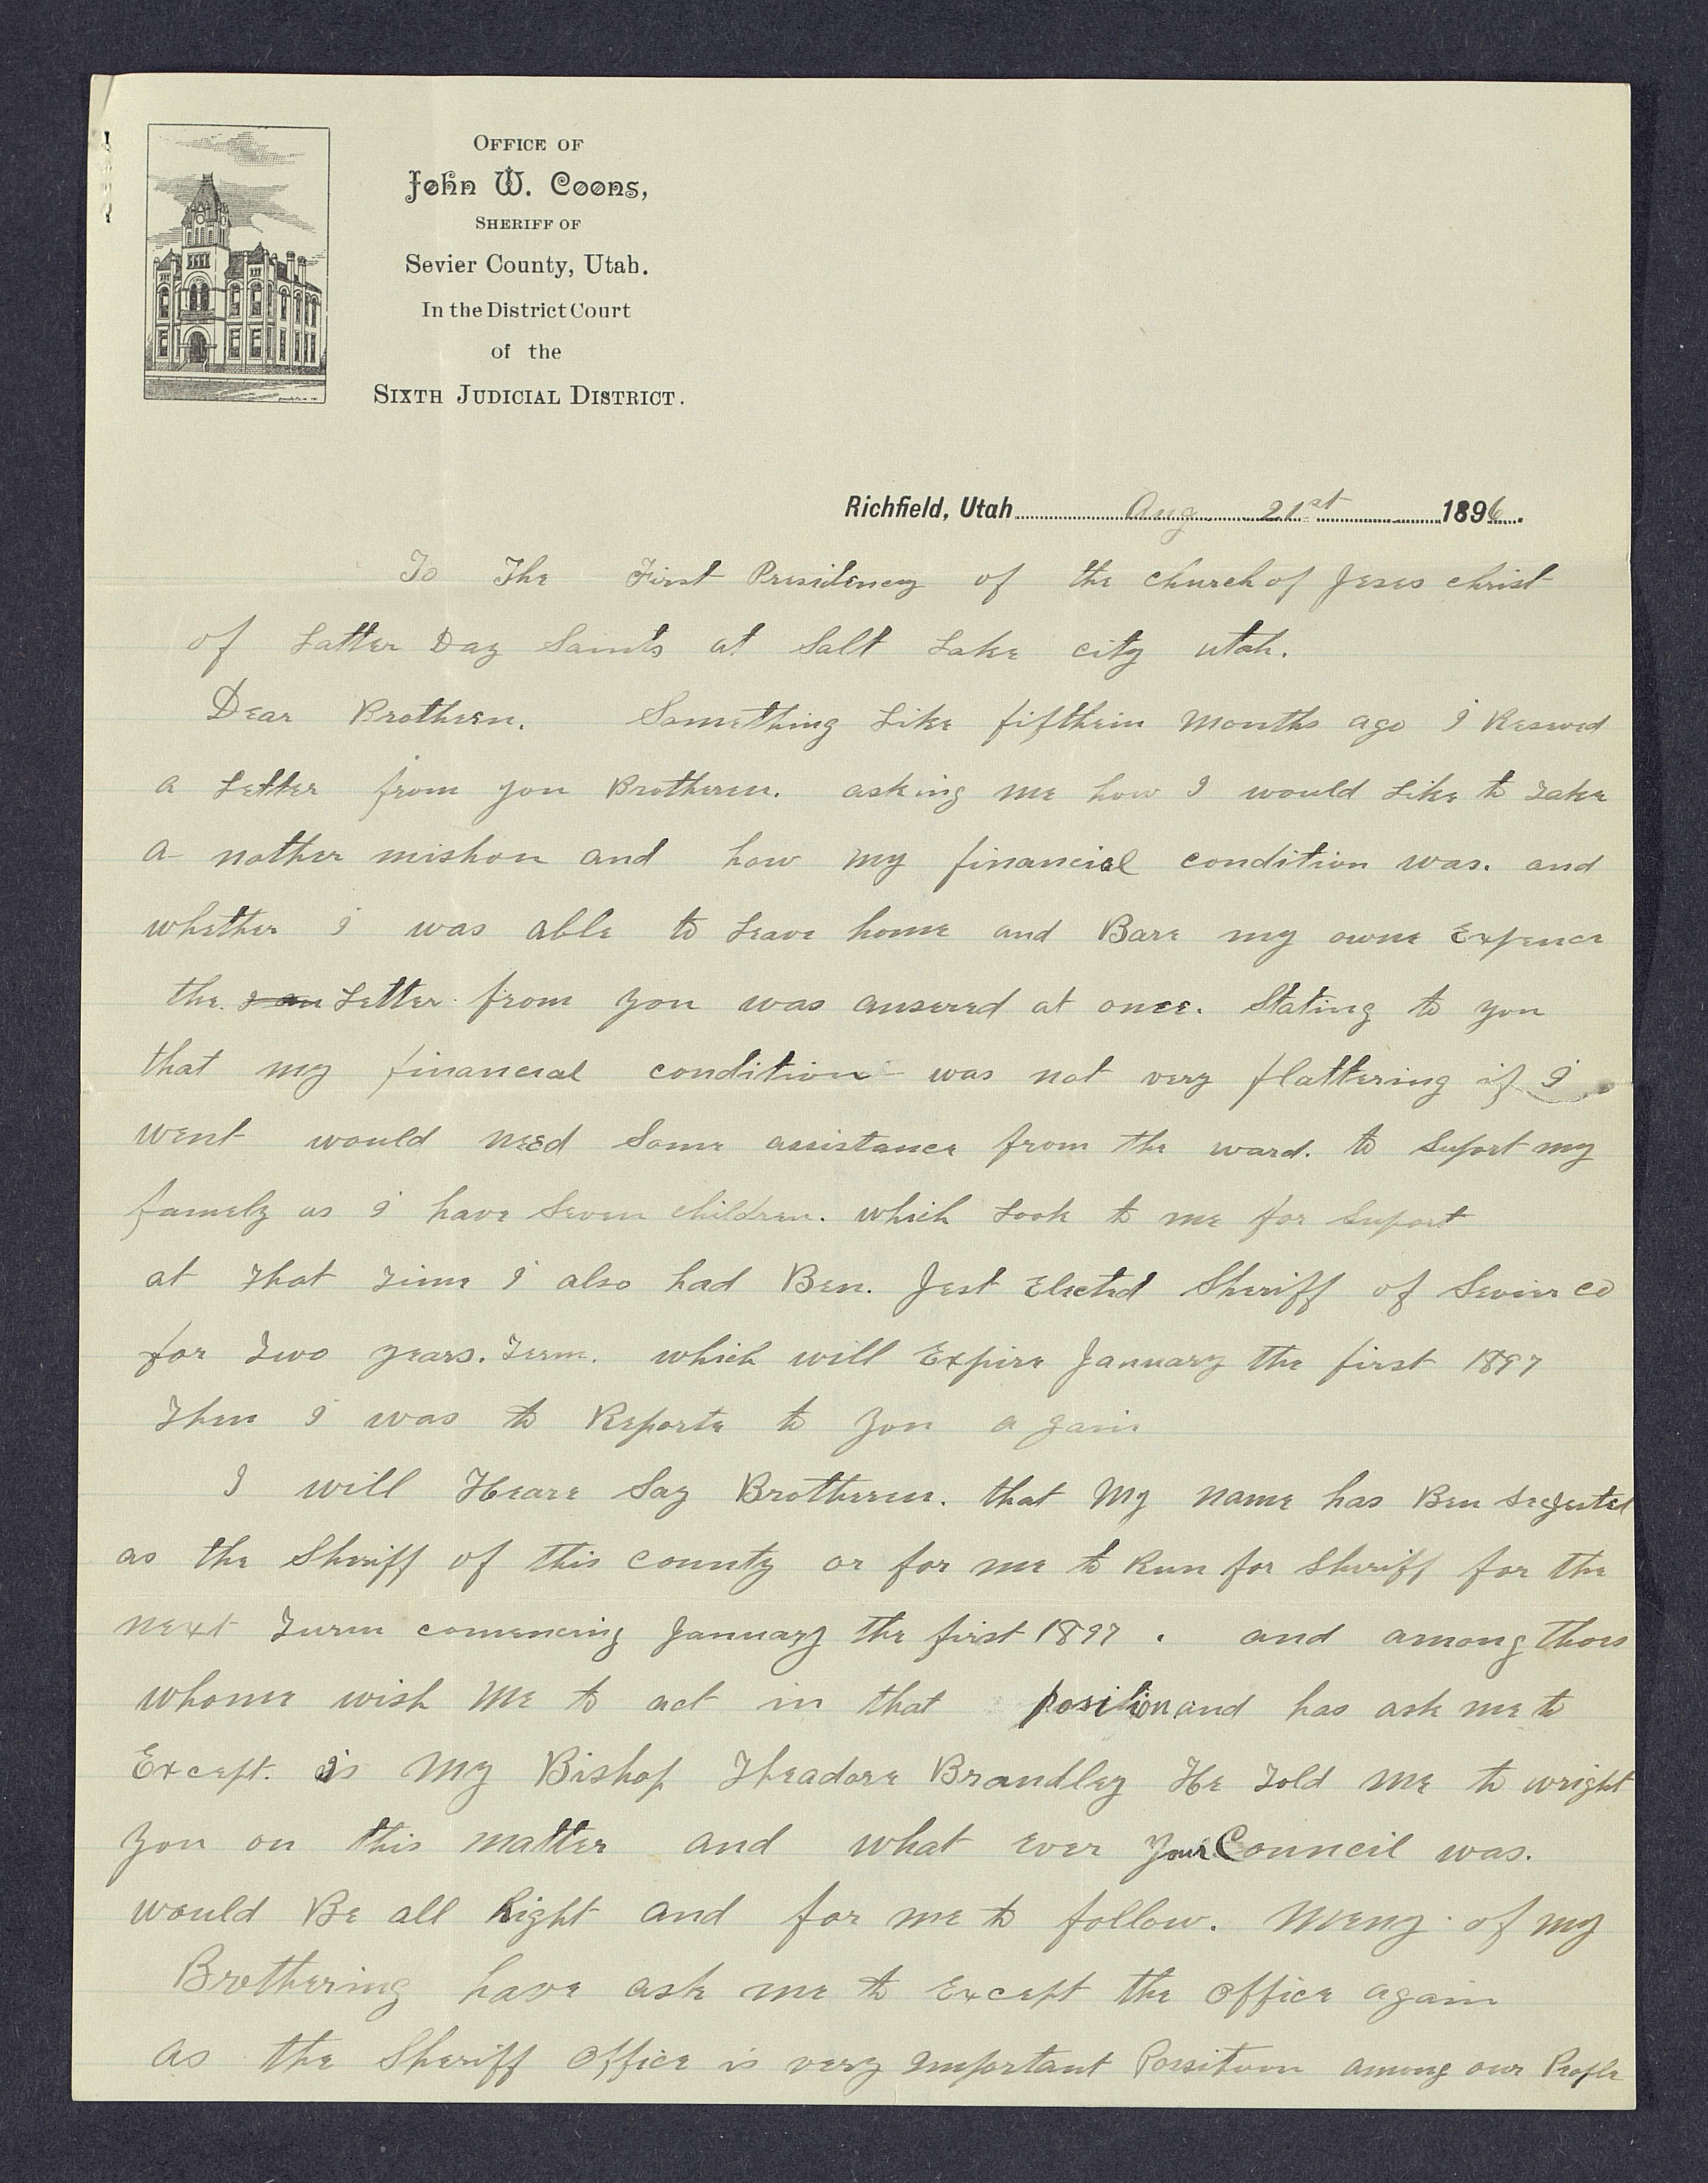 OFFICE OF
John W. Coons,
SHERIFF OF
Sevier County, Utah.
In the District Court
of the
SIXTH JUDICIAL DISTRICT.
Richfield, Utah Aug 21st 1896.
To The First Presidency of the church of Jeses christ
of Latter Day Saints at Salt Lake city utah.
Dear Brothern. Something Like fifthein Months ago I Reseved
a Letter from you Brotheren. asking me how I would Like to Take
a nother mishon and how my financial condition was. and
whether I was able to Leave home and Bare my owne Expence
the. I an Letter from you was ansered at once. Stating to you
that my financial condition was not very flattering if I
went would need Some assistance from the ward. to Suport my
famely as I have Seven children. which Look to me for Suport
at That Time I also had Ben. Jest Elected Sheriff of Sevier co
for Two years. Term. which will Expire January the first 1897
Then I was to Reporte to you a gain
I will Heare Say Brotheren. that My name has Ben Segested
as the Sheriff of this county or for me to Run for Sheriff for the
next Turm comencing January the first 1897. and among thoes
whome wish Me to act in that position and has ask me to
Except. is My Bishop Theadore Brandley He Told Me to wright
you on this matter and what ever your Council was.
would Be all Right and for me to follow. Meny of my
Brothering have ask me to Except the office again
as the Sheriff office is very Important Possitune among our People